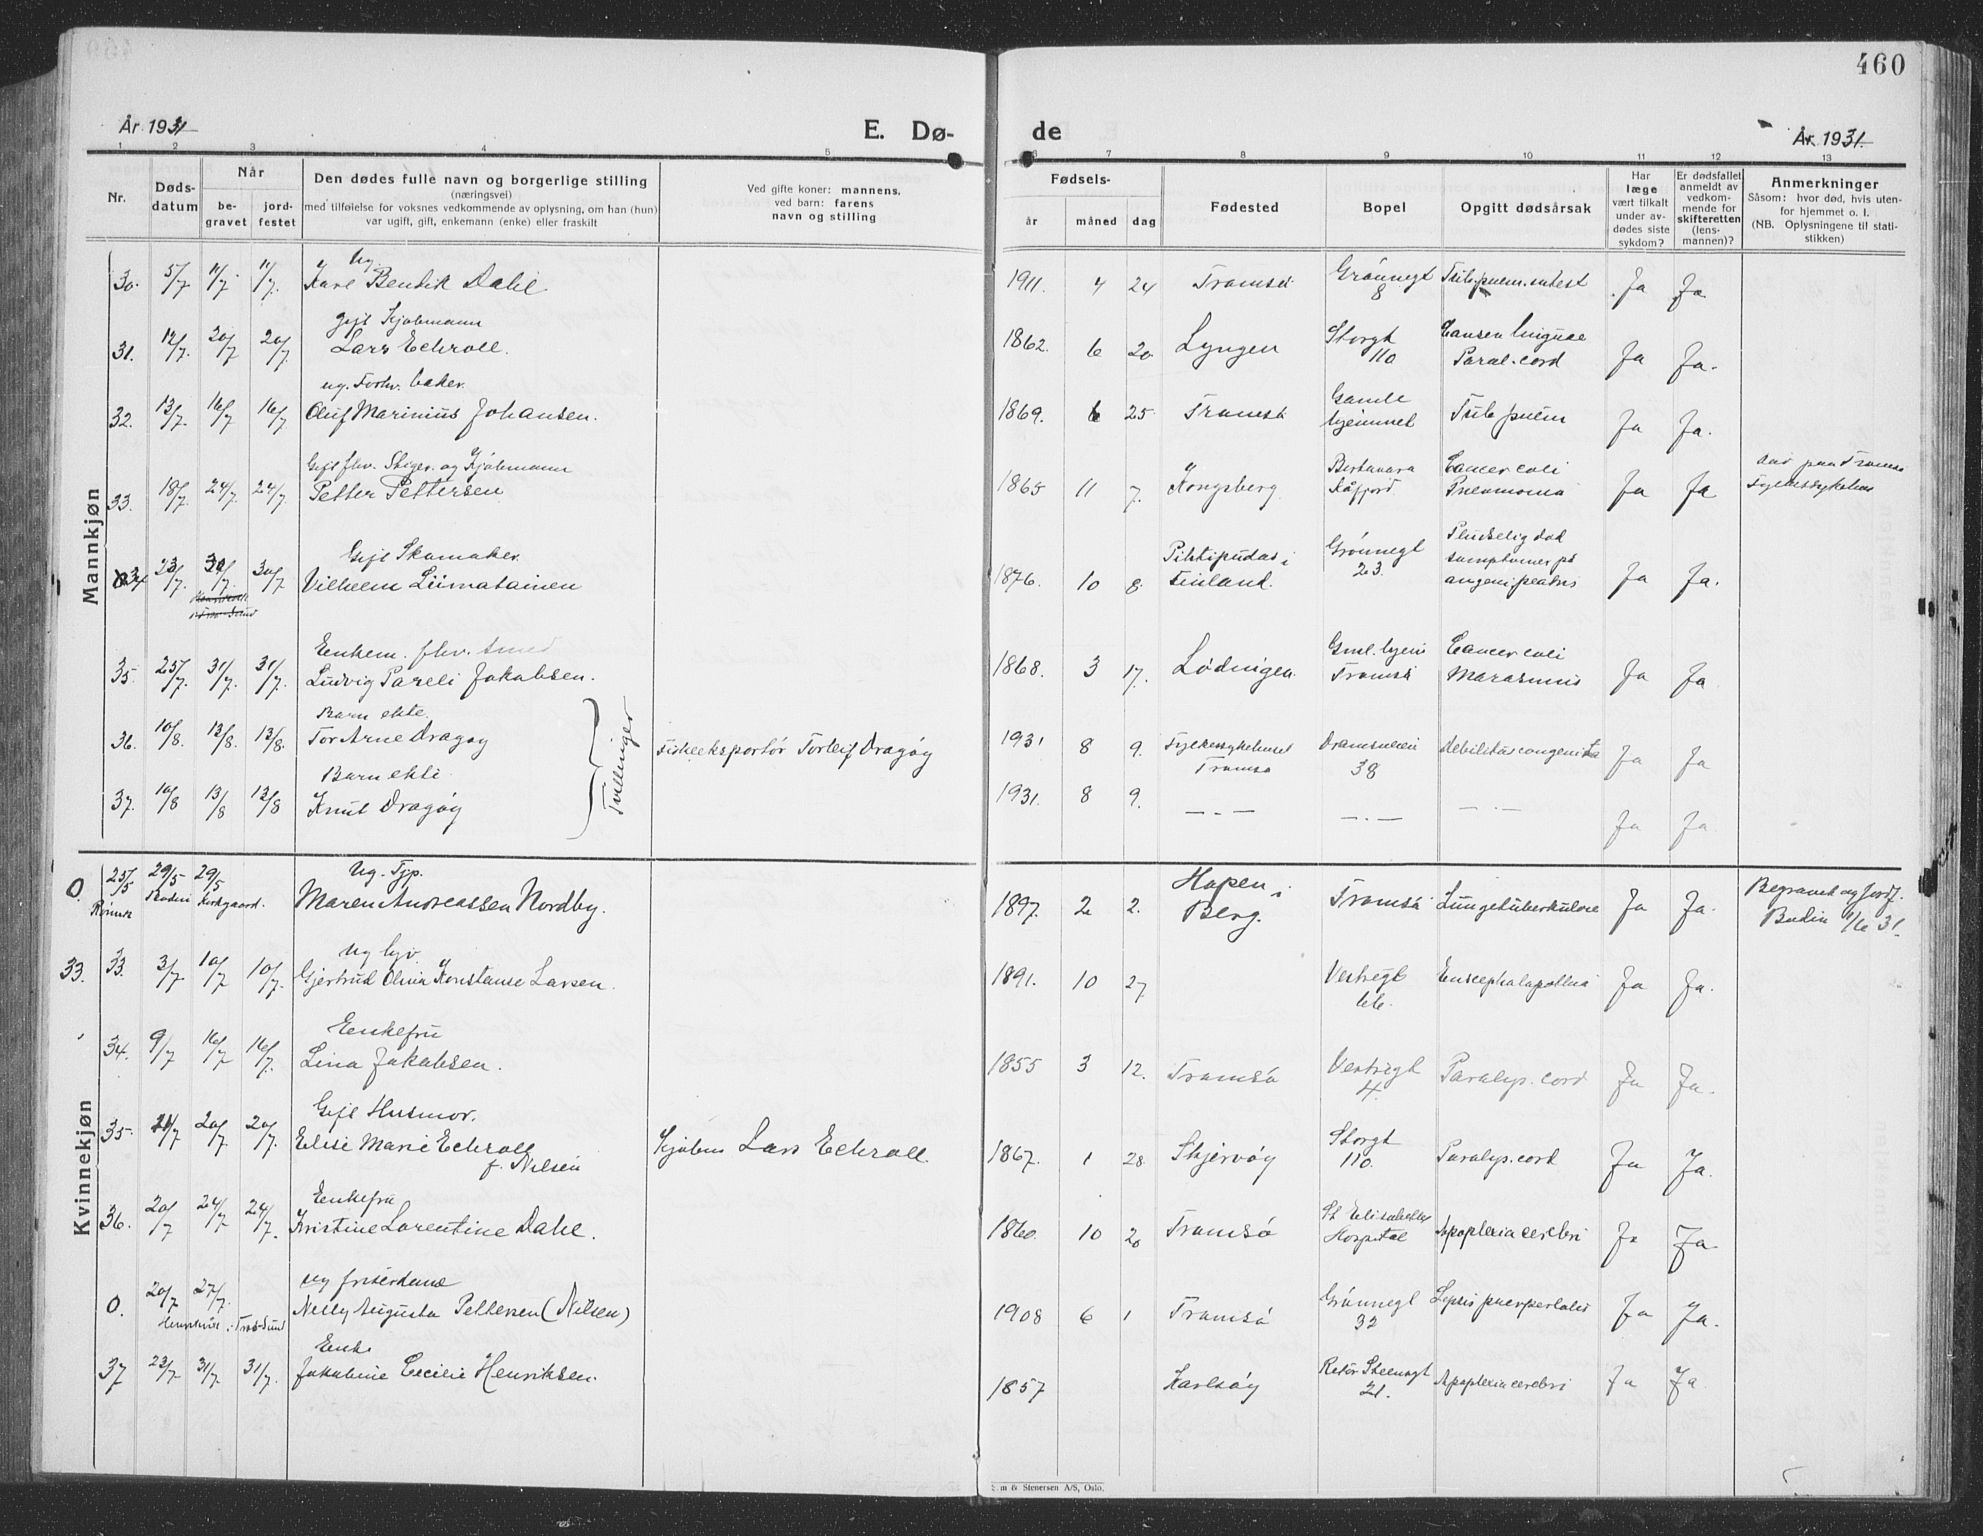 460
År 1931
E. Dø-
de
År 1931.
1 2 3 4 5 6 7 8 9 10 11 12 13
Nr.
Døds-
datum
Når
be-
gravet
jord-
festet
Den dødes fulle navn og borgerlige stilling
(næringsvei)
med tilføielse for voksnes vedkommende av oplysning, om han (hun)
var ugift, gift, enkemann (enke) eller fraskilt
Ved gifte koner: mannens,
ved barn: farens
navn og stilling
Fødsels-
år måned dag
Fødested
Bopel
Opgitt dødsårsak
Har
læge
vært tilkalt
under av-
dødes siste
sykdom?
Er dødsfallet
anmeldt av
vedkom-
mende for
skifteretten
(lens-
mannen)?
Anmerkninger
Såsom: hvor død, hvis uten-
for hjemmet o. l.
(NB. Oplysningene til stati-
stikken)
Mannkjøn
Ug.
30. 5/7 11/7 11/7. Karl Bendik Dahl 1911. 4 24 Tromsø Grönnegt 8 Ja Ja
Gift Kjøbmann
31. 12/7. 20/7 20/7. Lars Echroll. 1862. 6 20. Lyngen Storgt 110 Cancer linguae Paral. cord Ja Ja.
ug. Forhv. baker.
32. 13/7. 16/7 16/7 Oluf Marinius Johansen. 1869. 6 25. Tromsø Gamle hjemmet Tub. pulm Ja Ja.
Gift fhv. Stiger og Kjöbmann
33. 18/7. 24/7. 24/7. Petter Pettersen 1865 11 7. Kongsberg Birtavara Kåfjord. Cancer coli Pneumonia Ja Ja död paa Tromsø Fylkessykehus
Gift Skomaker.
34 23/7. 30/7. 30/7 Vilhelm Liimatainen 1876. 10 8. Pihtipudas i Finland. Grönnegt 23. Pludselig död symptomer på angeni pectoris Ja Ja.
Enkem. fhv. smed
35. 25/7. 31/7. 31/7. Ludvig Pareli Jakobsen. 1868. 3 17. Lödingen Gml. hjem Tromsö Cancer coli Marasmus Ja Ja
Barn ekte.
36. 10/8. 13/8. 13/8. Tor Arne Dragøy Fiskeeksportör Torleif Dragöy 1931 8 9. Fylkessykehuset Tromsø Dramsveien 38 debilitas congenita Ja Ja
Barn ekte.
37. 10/8 13/8 13/8 Knut Dragöy 1931. 8 9. — . — — . — — . — Ja Ja
Tvillinger
Kvinnekjøn
Ug. Typ.
0. 25/5 29/5 29/5 Bodin Kirkgaard. Maren Andreassen Nordby. 1897. 2 2. Hopen i Berg. Tromsö Lungetuberkulose Ja Ja. Begravet og jordf. Bodin 1/6 31.
Ug hjv.
33. 33. 3/7 10/7 10/7. Gjertrud Olivia Konstanse Larsen. 1891. 10 27 Vestregt 66. Encephalopathia Ja Ja.
Enkefru
34. 9/7 16/7 16/7. Lina Jakobsen. 1855 3 12. Tromsö Vestregt 4. Paralys. cord Ja Ja.
Gift Husmor.
35. 11/7 20/7 20/7. Elise Marie Echroll f. Nilsen Kjöbm Lars Echroll. 1867. 1 28. Skjervöy Storgt 110. Paralys. cord Ja Ja.
Enkefru
36. 20/7 24/7 24/7. Kristine Lorentine Dahl. 1860. 10 20 Tromsö St Elisabeths Hospital Apoplexia cerebri Ja Ja.
ug friserdame
0. 20/7 27/7. Nelly Augusta Pettersen (Nilsen) 1908 6 1 Tromsö Grönnegt 32 Sepsis puerperalis Ja Ja.
Enke
37 23/7. 31/7. 31/7. Jakobine Cecilie Henriksen. 1857 Karlsöy Rektor Steensgt 21. Apoplexia cerebri Ja Ja.
& Stenersen A/S, Oslo.